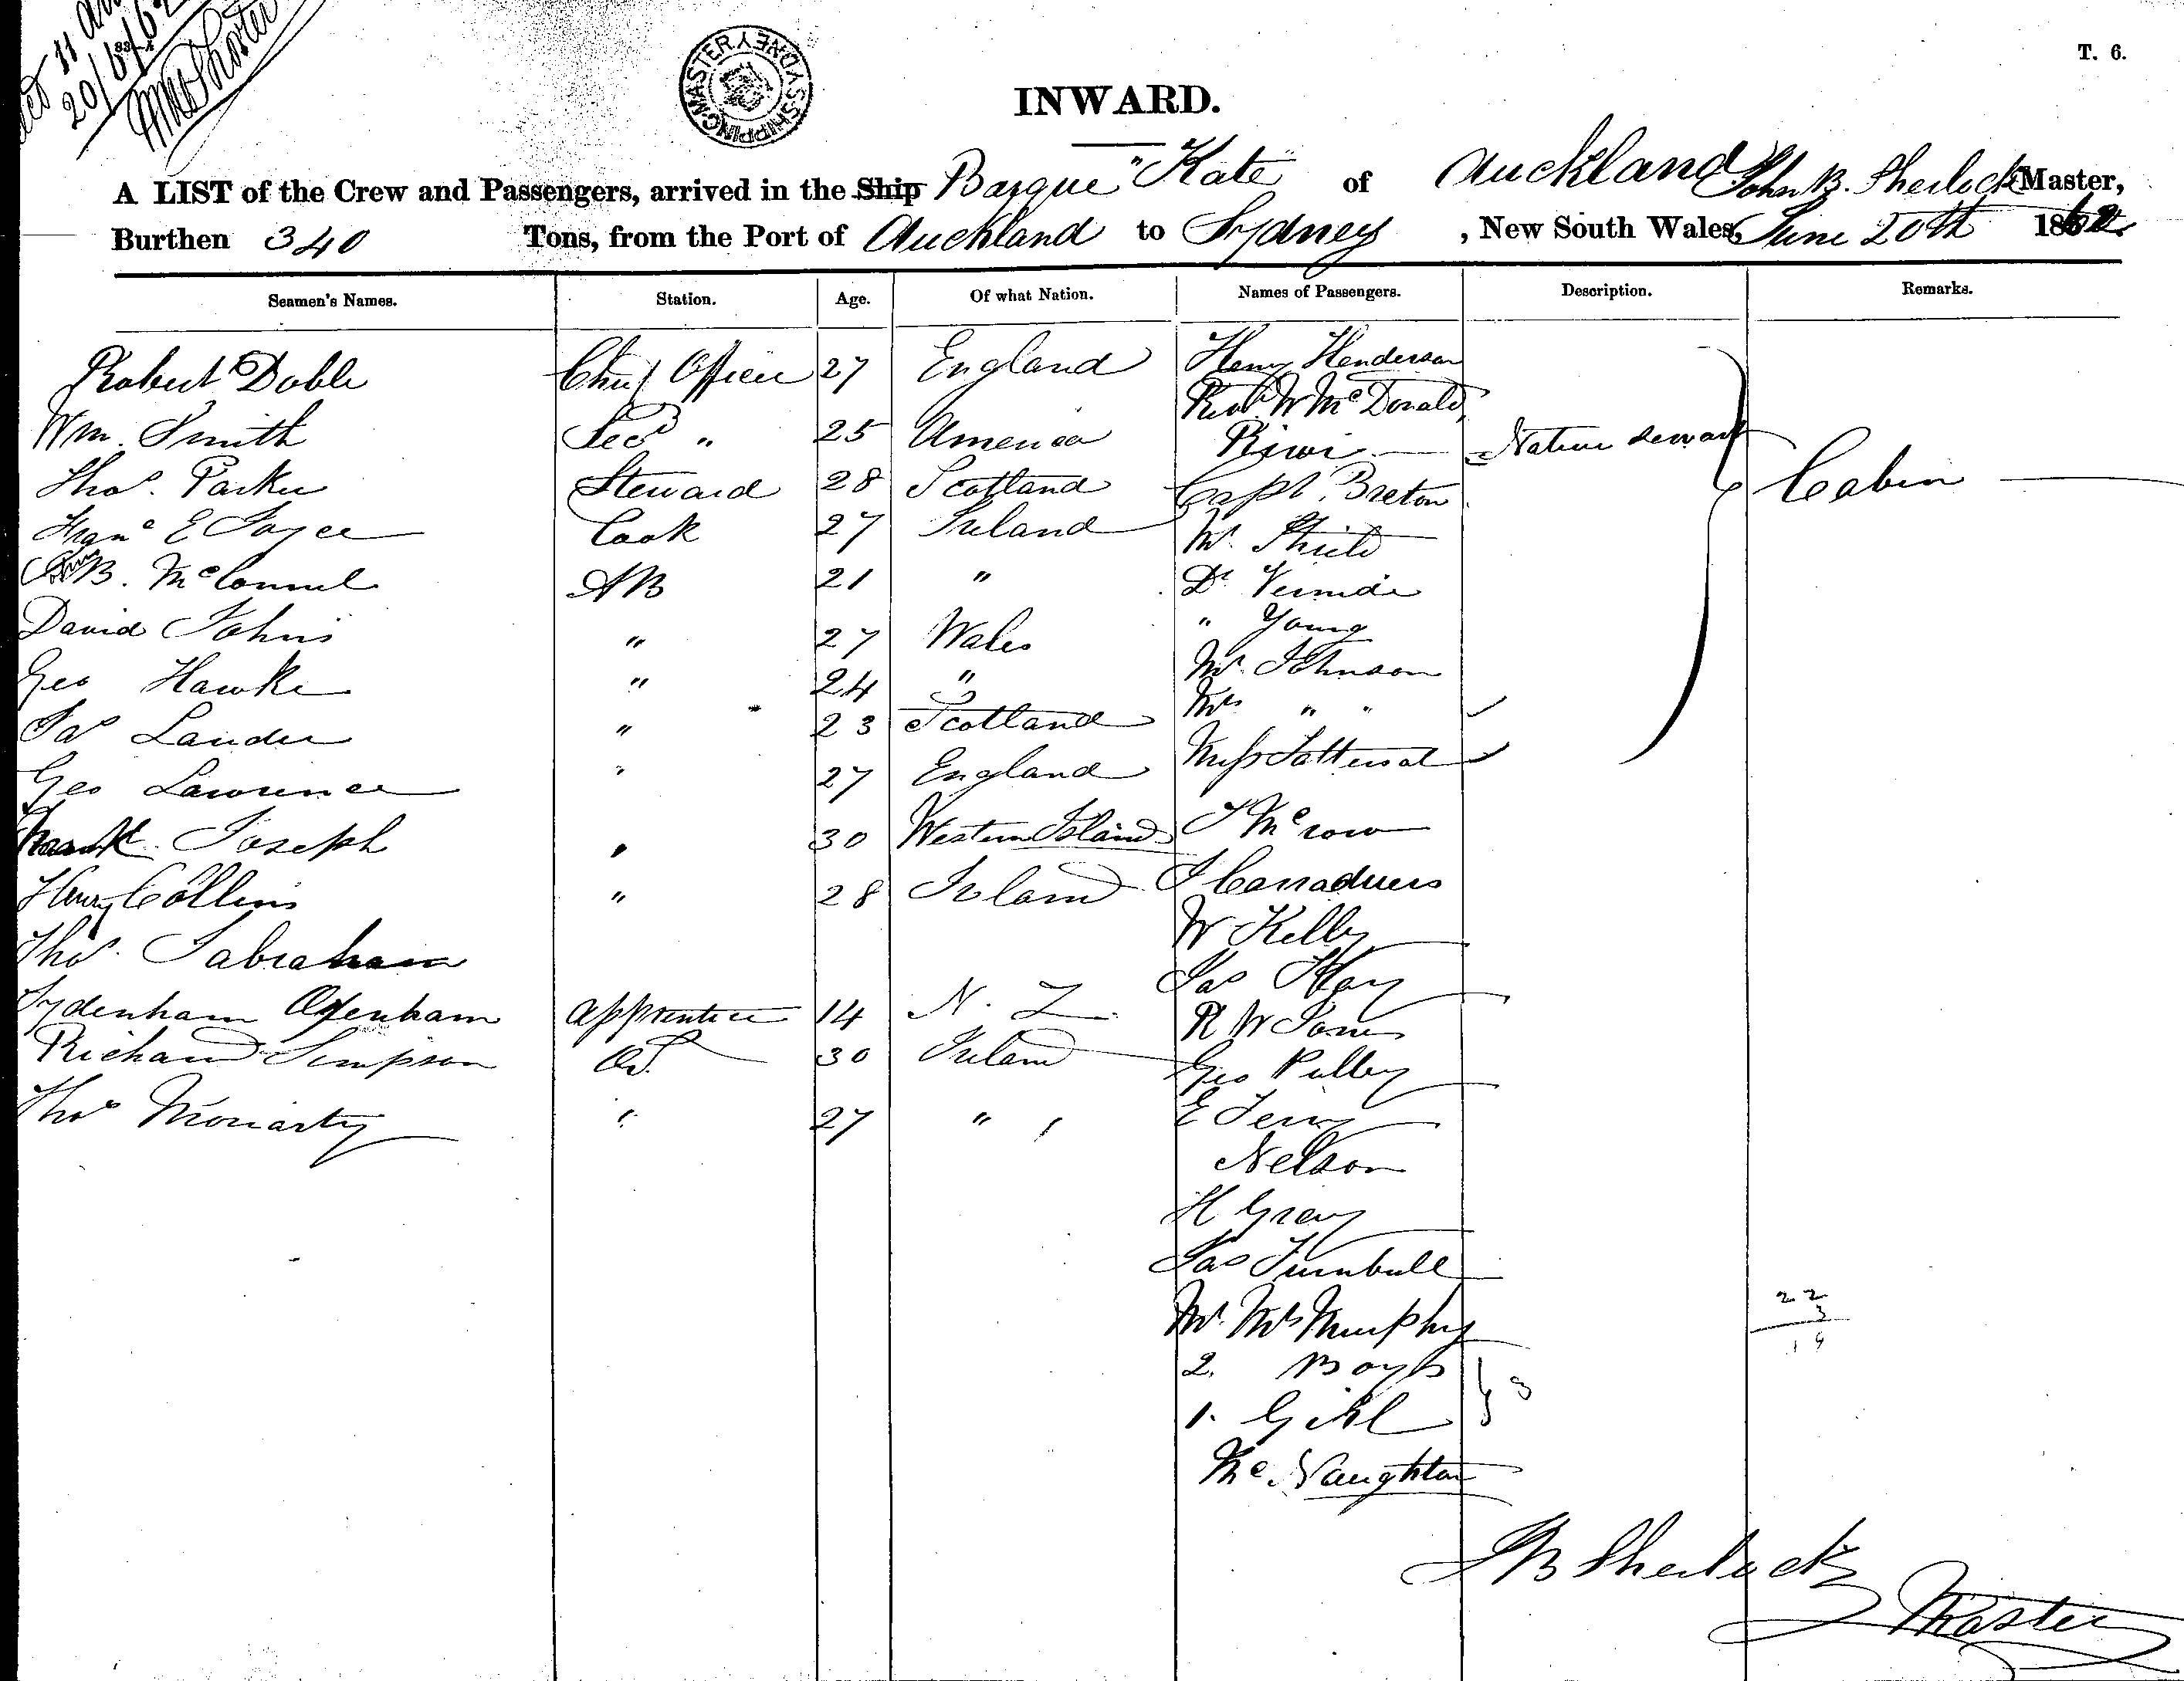 20/6/62
SHIPPING MASTER SYDNEY
T. 6.
INWARD.
A LIST of the Crew and Passengers, arrived in the Ship Barque "Kate" of Auckland John B. Sherlock Master,
Burthen 340 Tons, from the Port of Auckland to Sydney, New South Wales, June 20th 1862.
Seamen's Names. Station. Age. Of what Nation. Names of Passengers. Description. Remarks.
Robert Doble Chief Officer 27 England Henry Henderson
Revd. W McDonald
Wm. Smith Secd " 25 America Kiwi Native servant
Thos. Parker Steward 28 Scotland Capt. Breton Cabin
Franc E Joyce Cook 27 Ireland Mr.
B. McConnel AB 21 " Dr
David Johns " 27 Wales " Young
Geo Hawke " 24 " Mr. Johnson
Jas Lauder " 23 Scotland Mrs " "
Geo Lawrence " 27 England Miss Tattersal
Frank Joseph " 30 Western Island J Mc
Henry Collins " 28 Ireland J
W Kelly
Thos. Jas Hay
Sydenham Apprentice 14 N. Z. R W Jones
Richard Simpson OS. 30 Ireland Geo Pulley
Thos Moriarty " 27 " " E Terry
Nelson
H Gray
Jas Turnbull
Mr. Mrs Murphy
2. Boys 3
1. Girl
McNaughton
22
3
19
JB Sherlock
Master